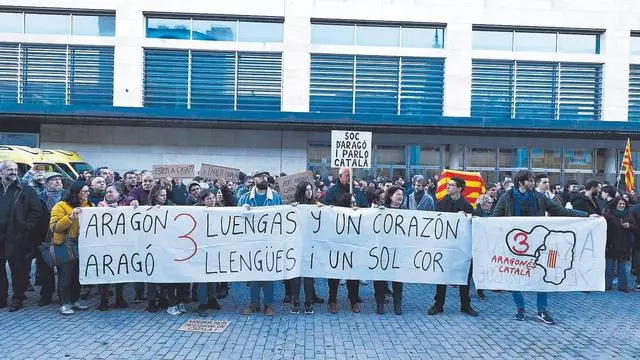 SOC
D'ARAGÓ I
PARLO
CATALÀ
ARAGÓN 3 LUENGAS Y UN CORAZÓN
ARAGÓ LLENGÜES i UN SOL COR
3
ARAGONÉS
CATALÀ